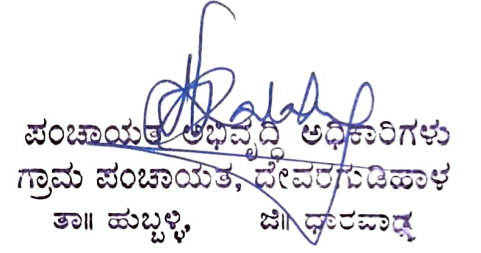 ಪಂಚಾಯತ ಅಭಿವೃದ್ಧಿ ಅಧಿಕಾರಿಗಳು
ಗ್ರಾಮ ಪಂಚಾಯತ, ದೇವರಗುಡಿಹಾಳ
ತಾ॥ ಹುಬ್ಬಳ್ಳಿ, ಜಿ॥ ಧಾರವಾಡ